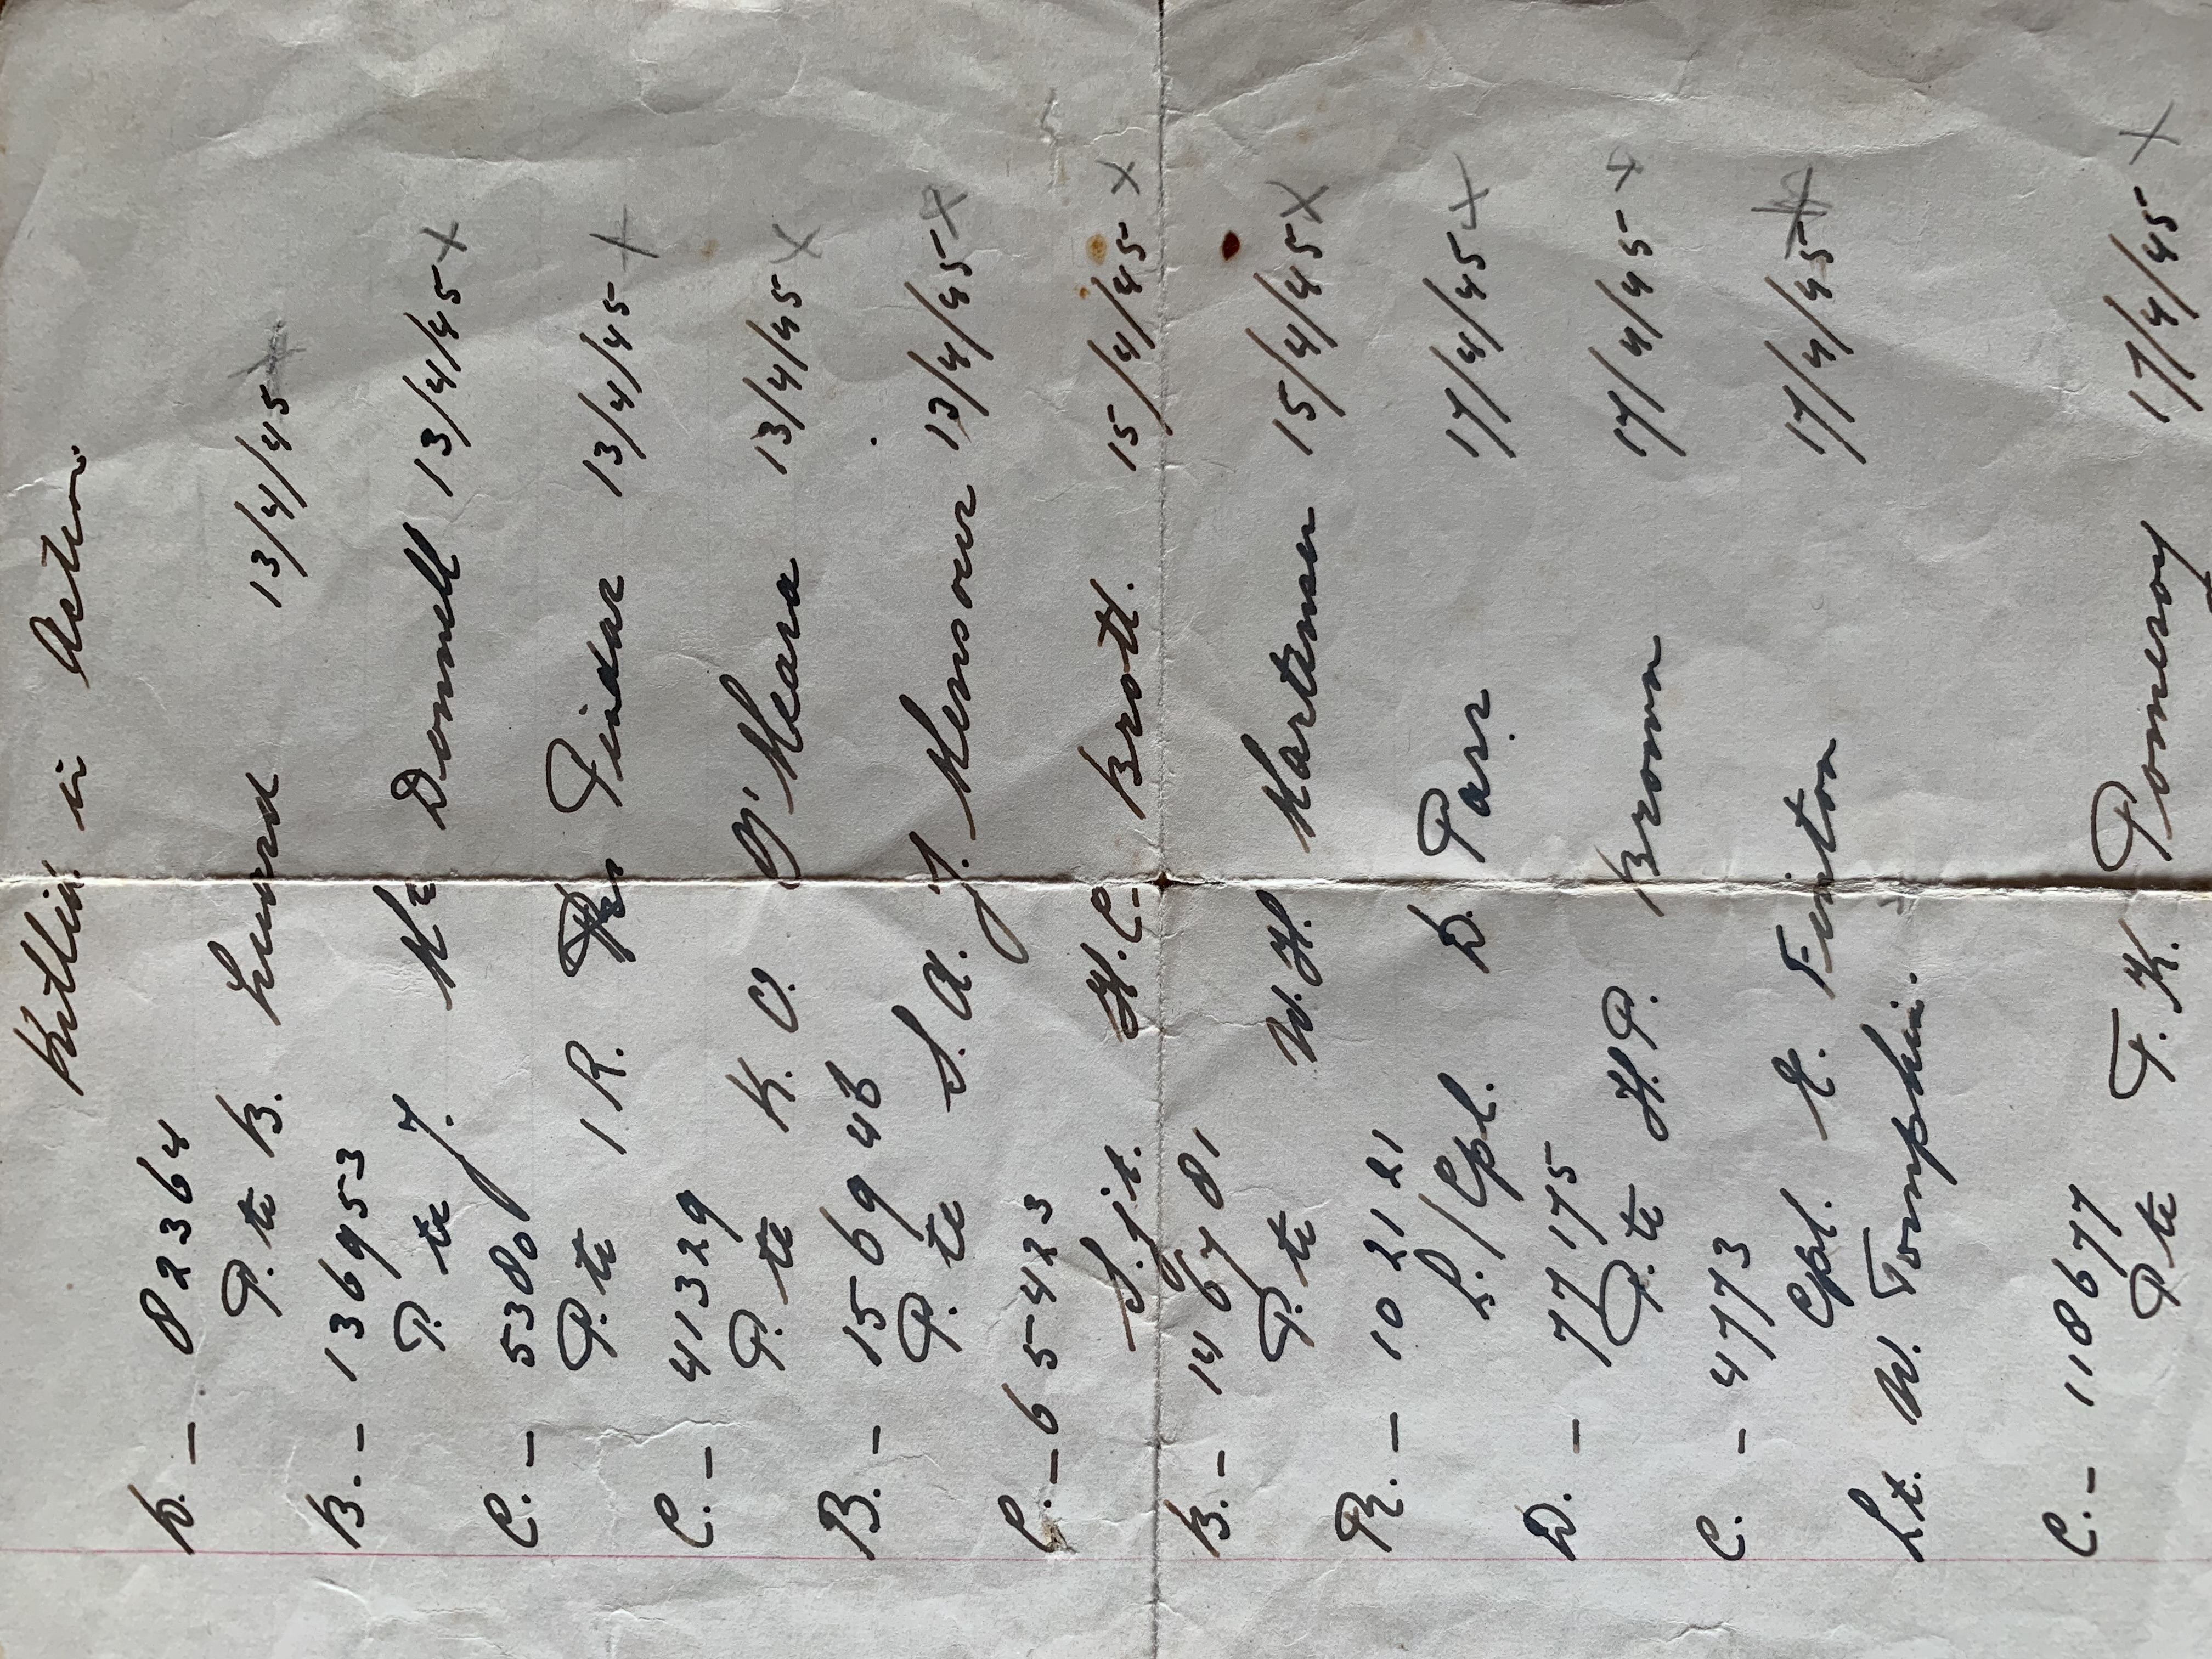 Killed in Action
D. - 82364
P.te B. Lunard 13/4/45 X
B. - 136953
P.te J. Mc Donnell 13/4/45 X
C. - 5380
P.te I R. Pindar 13/4/45 X
C. - 41329
P.te K. O. O'Meara 13/4/45 X
B. - 156946
P.te S. A. J. Mensour 13/4/45 X
C. - 65423
Sjt. H. C. Brott. 15/4/45 X
B. - 146781
P.te W. H. Martensen 15/4/45 X
R. - 102121
L/Cpl. D. Parr 17/4/45 X
D. - 77175
P.te H. P. Brown 17/4/45 X
C. - 4773
Cpl. E. Finton 17/4/45 X
Lt. W. Tomphin.
C. - 118677
P te F. K. Pomeroy 17/4/45 X